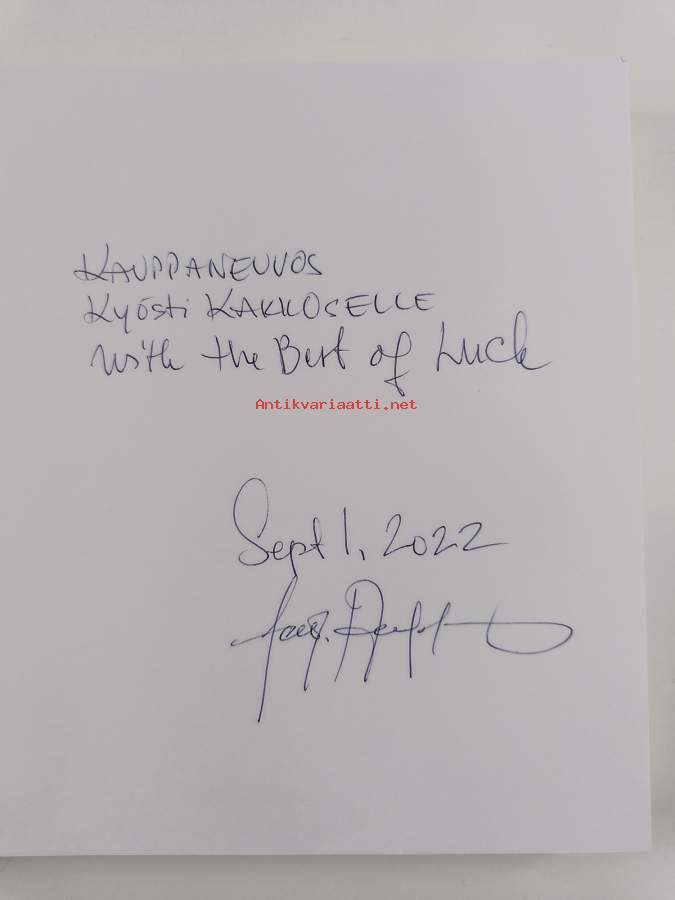 KAUPPANEUVOS
Kyösti KAKKOSELLE
with the Best of Luck
Antikvariaatti.net
Sept 1, 2022